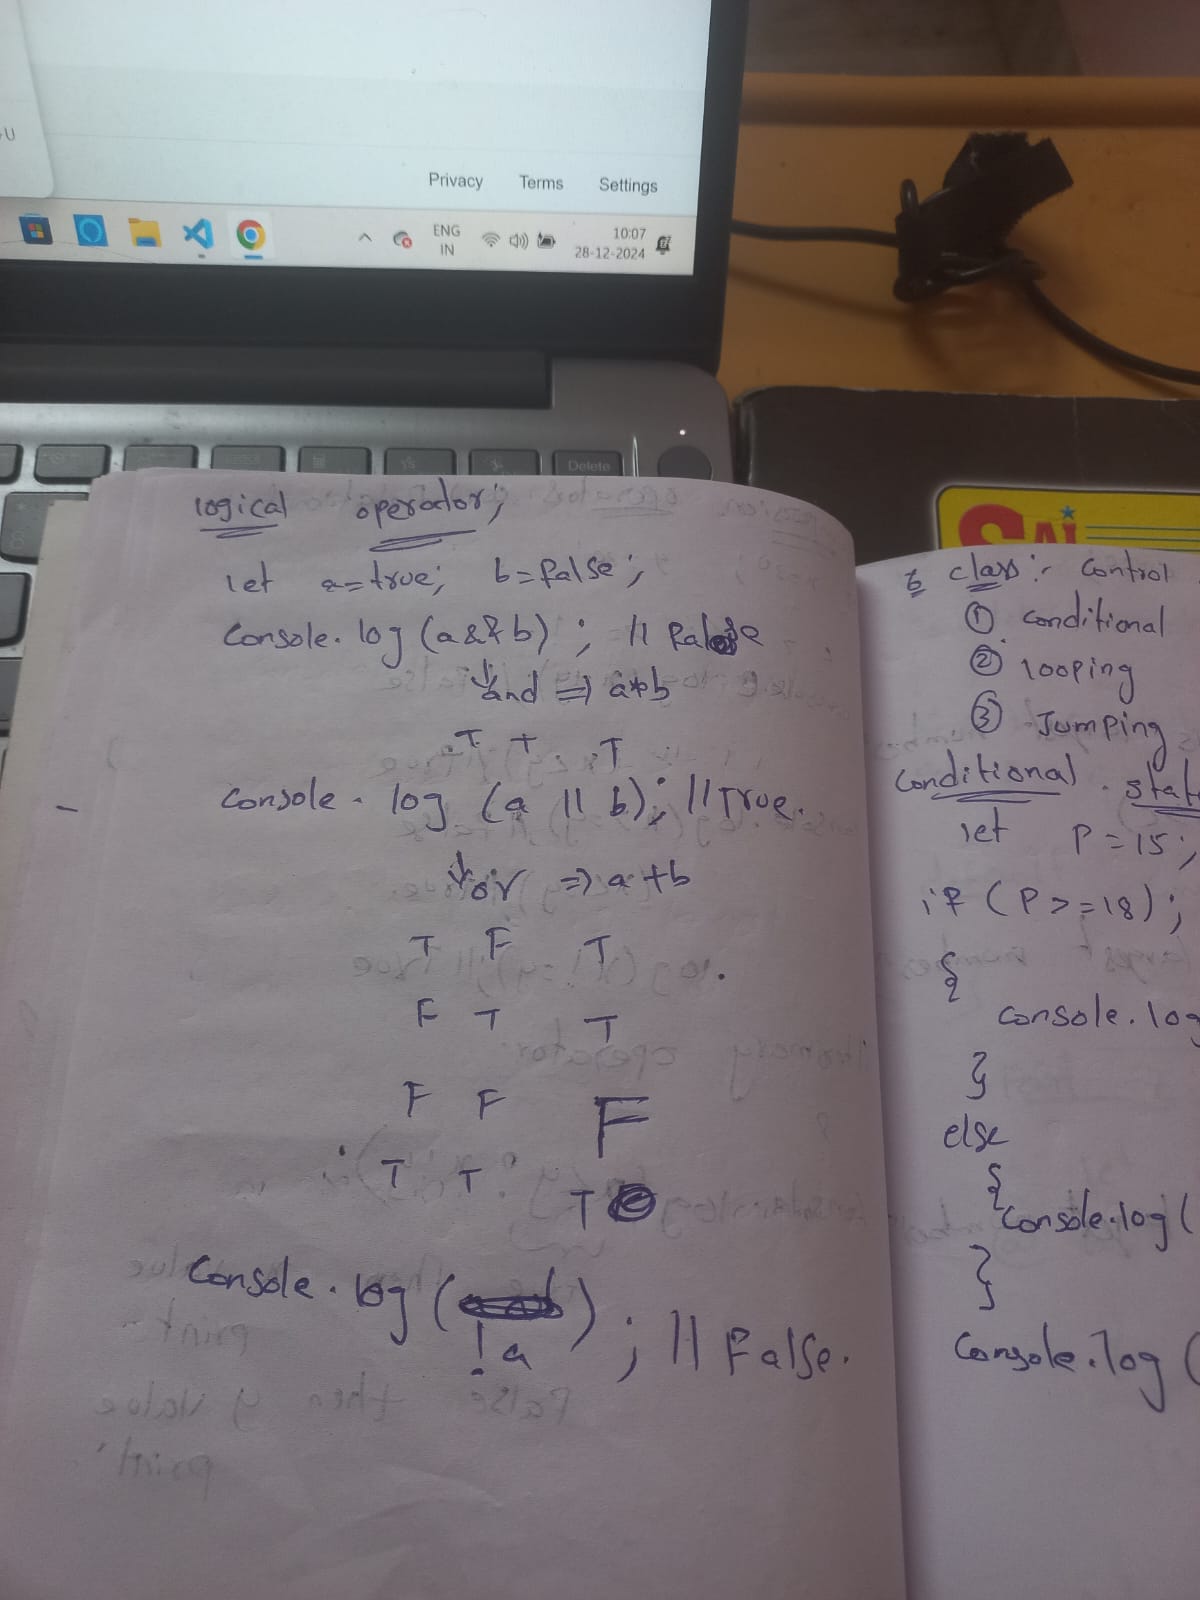 U
Privacy Terms Settings
ENG
IN
10:07
28-12-2024
Delete
SAI
logical operador;
let a=true; b=false;
Console.log (a&&b); // False
and => a*b
T T T
Console.log (a || b); // True.
or => a+b
T F T
F T T
F F F
T T T
Console.log ( );
!a ; // False.
6 class:- Control
① conditional
② looping
③ Jumping
Conditional state
let P=15;
if (P>=18);
{
console.log
}
else
{
Console.log(
}
Console.log (